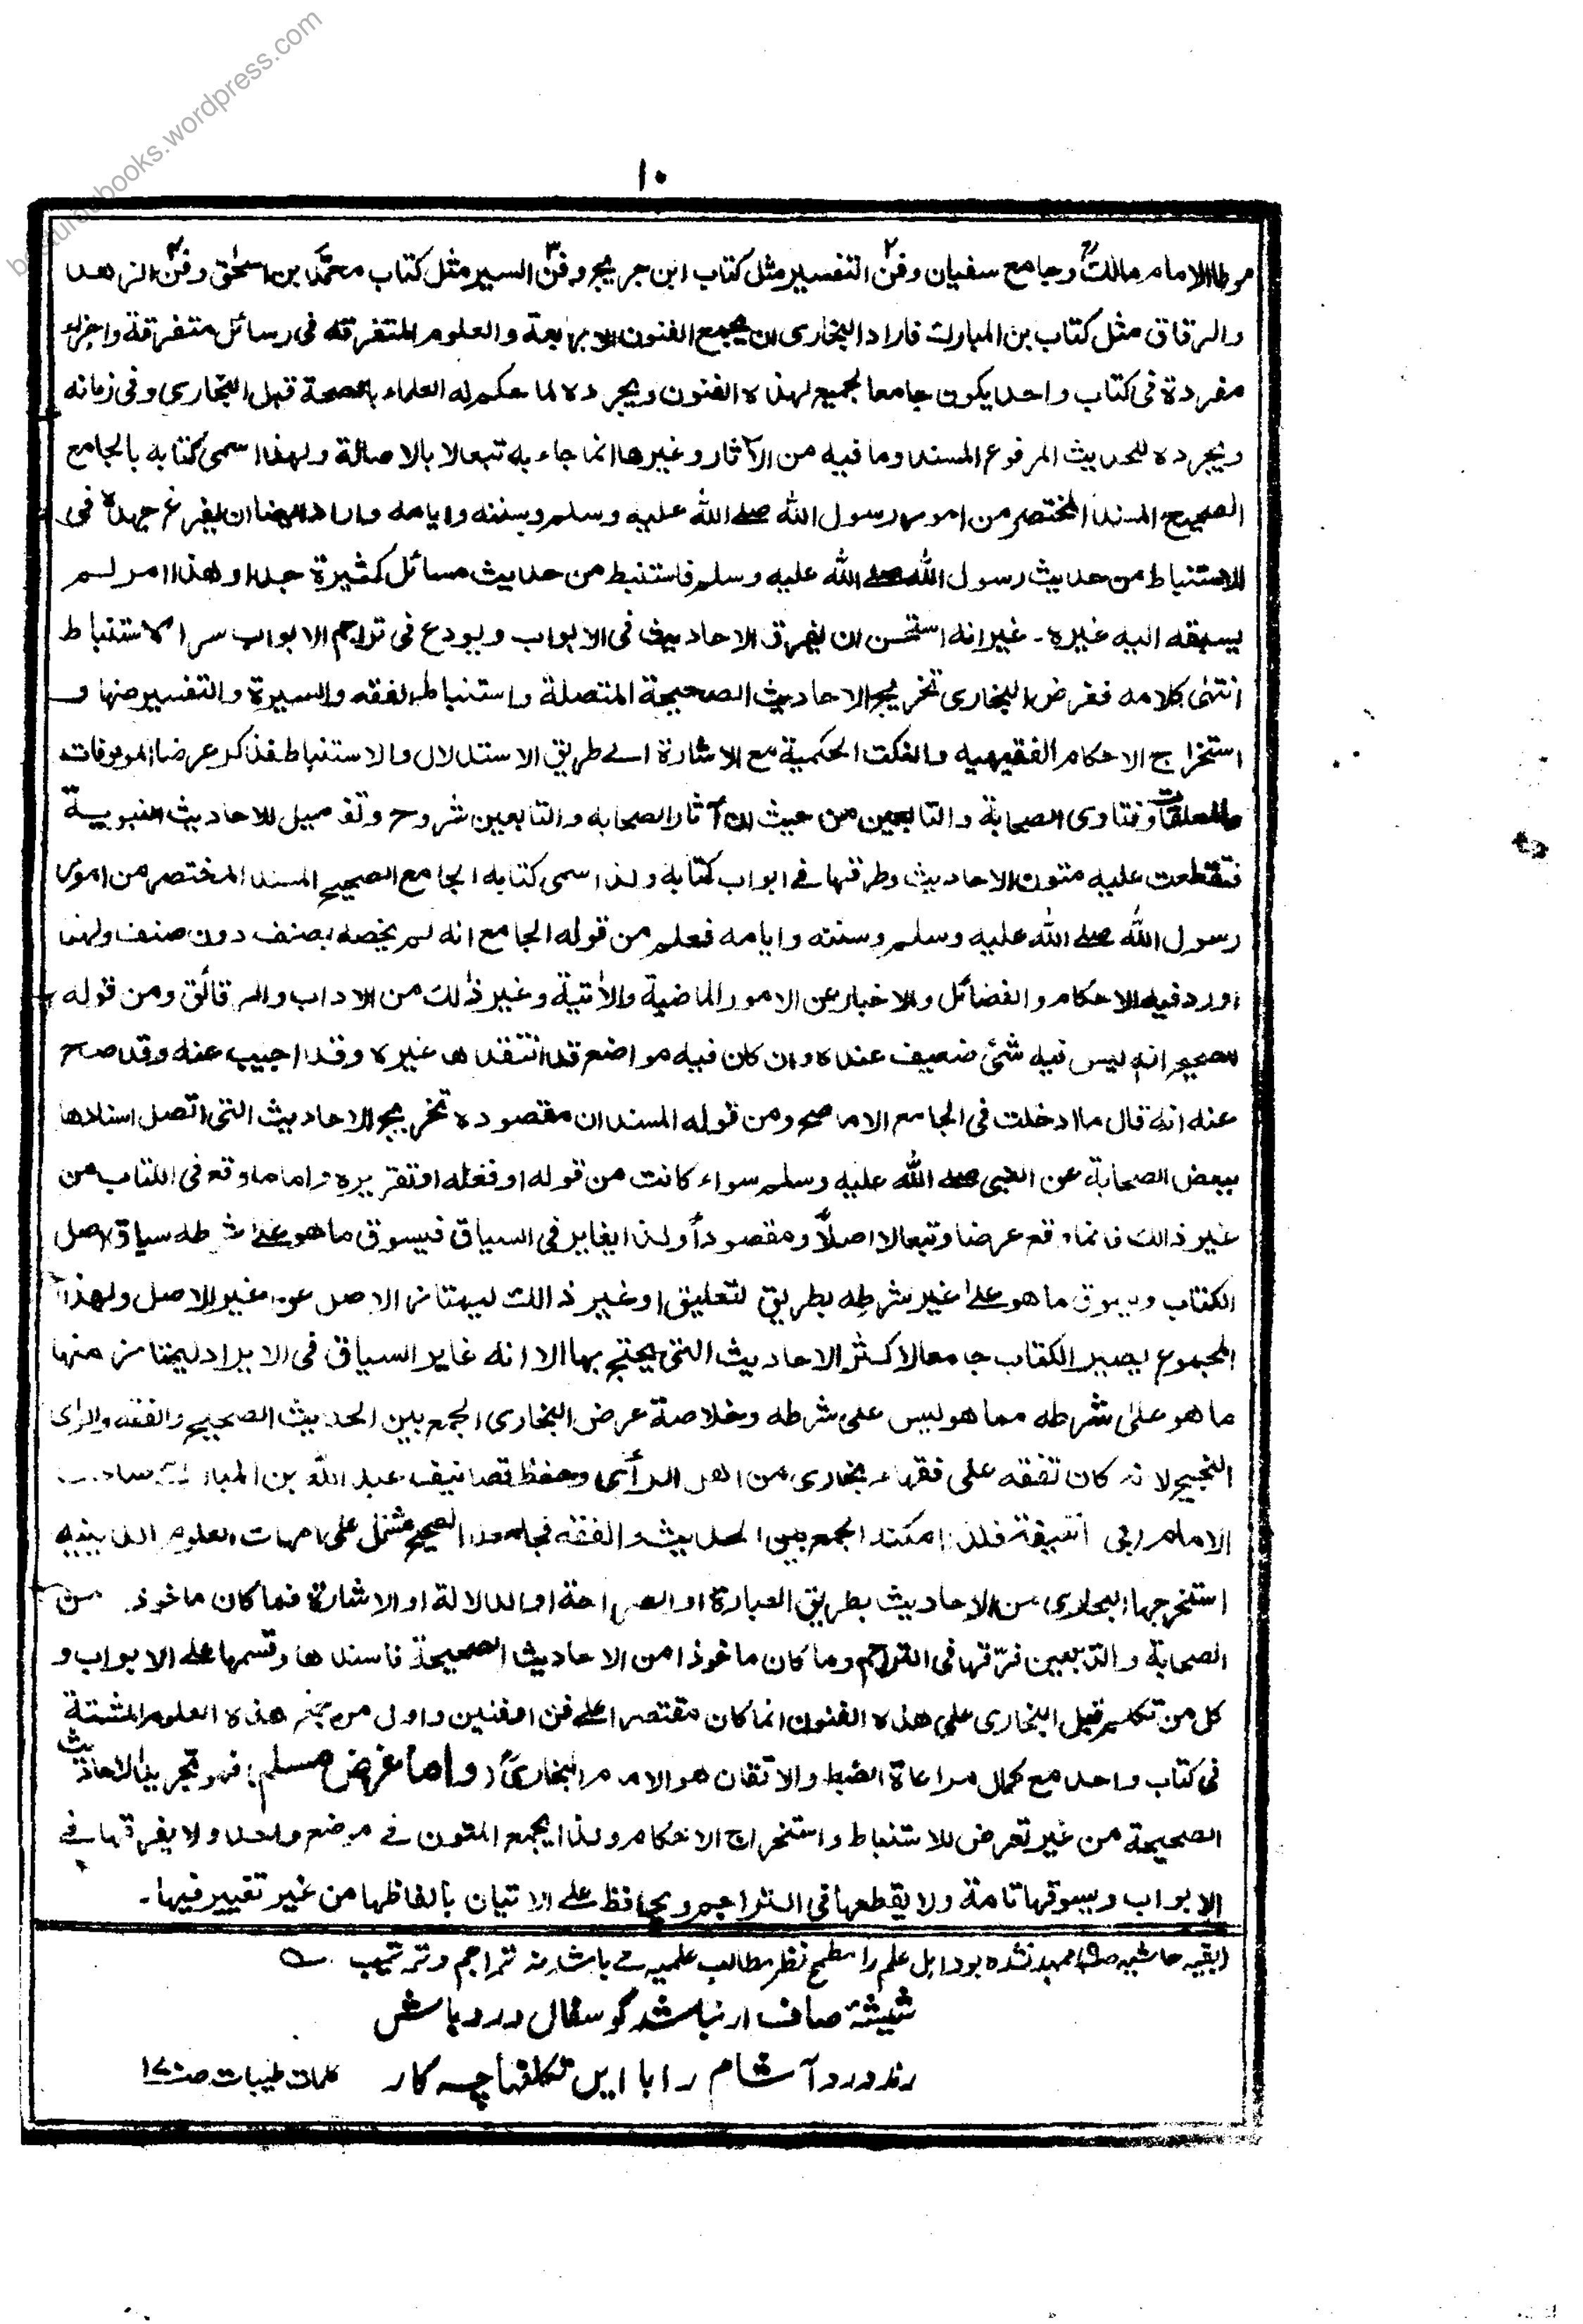 ١٠
موطا الامام مالكؒ وجامع سفيان وفن٢ التفسير مثل كتاب ابن جريج وفن٣ السير مثل كتاب محمد بن اسحٰق وفن٤ الزهد
والرقاق مثل كتاب بن المبارك فاراد البخارى ان يجمع الفنون الاربعة والعلوم المتفرقه فى رسائل متفرقة واجزاء
مفردة فى كتاب واحد يكون جامعا لجميع لهذه الفنون ويجرده لما حكم له العلماء بالصحة قبل البخارى وفى زمانه
ويجرده للحديث المرفوع المسند وما فيه من الآثار وغيرها انما جاء به تبعا لا بالاصالة ولهذا سمى كتابه بالجامع
الصحيح المسند المختصر من امور رسول الله صلے الله عليه وسلم وسننه وايامه واراد ايضا ان يفرغ جهده فى
الاستنباط من حديث رسول الله صلے الله عليه وسلم فاستنبط من حديث مسائل كثيرة جدا وهذا امر لم
يسبقه اليه غيره ۔ غير انه استحسن ان يفرق الاحاديث فى الابواب ويودع فى تراجم الابواب سر الاستنباط
انتهٰى كلامه فغرض البخارى تخريج الاحاديث الصحيحة المتصلة واستنباط الفقه والسيرة والتفسير منها و
استخراج الاحكام الفقيهيه والنكت الحكمية مع الاشارة الے طريق الاستدلال والاستنباط فذكر عرضا الموقوفات
والمعلقات وفتاوى الصحابة والتابعين من حيث ان آثار الصحابه والتابعين شروح وتفصيل للاحاديث النبوية
فتقطعت عليه متون الاحاديث وطرقها فے ابواب كتابه ولذا سمى كتابه الجامع الصحيح المسند المختصر من امور
رسول الله صلے الله عليه وسلم وسنته وايامه فعلم من قوله الجامع انه لم يخصه بصنف دون صنف ولهذا
اورد فيه الاحكام والفضائل والاخبار عن الامور الماضية والآتية وغير ذٰلك من الاداب والرقائق ومن قوله
الصحيح انه ليس فيه شئ ضعيف عنده وان كان فيه مواضع قد انتقدها غيره وقد اجيب عنه وقد صح
عنه انه قال ما ادخلت فى الجامع الا ما صح ومن قوله المسند ان مقصوده تخريج الاحاديث التى اتصل اسنادها
ببعض الصحابة عن النبى صلے الله عليه وسلم سواء كانت من قوله او فعله او تقريره واما ما وقع فى الكتاب من
غير ذالك فانما وقع عرضا وتبعا لا اصلاً ومقصوداً ولذا يغاير فى السياق فيسوق ما هو علے شرطه سياق اصل
الكتاب ويسوق ما هو علے غير شرطه بطريق التعليق او غير ذالك ليمتاز الاصل عن غير الاصل ولهذا
المجموع يصير الكتاب جامعا لاكثر الاحاديث التى يحتج بها الا انه غاير السياق فى الايراد ليمتاز منها
ما هو علىٰ شرطه مما هو ليس على شرطه وخلاصة غرض البخارى الجمع بين الحديث الصحيح والفقه والراى
النجيح لانه كان تفقه على فقهاء بخارى من اهل الرأى وحفظ تصانيف عبد الله بن المبارك
الامام ابى فلذا امكنه الجمع بين الحديث والفقه فجامعه الصحيح مشتمل على امهات العلوم الدينيه
استخرجها البخارى من الاحاديث بطريق العبارة او الصراحة او الدلالة او الاشارة فما كان ماخوذ من
الصحابة والتابعين فرّقها فى التراجم وما كان ماخوذا من الاحاديث الصحيحة فاسندها وقسمها علے الابواب و
كل من تكلم قبل البخارى على هذه الفنون انما كان مقتصرا علے فن او فنين واول من جمع هذه العلوم المشتتة
فى كتاب واحد مع كمال مراعاة الضبط والاتقان هو الامام البخارىؒ (واما غرض مسلم) فهو تجريد الاحاديث
الصحيحة من غير تعرض للاستنباط واستخراج الاحكام ولذا يجمع المتون فے موضع واحد ولا يفرقها فے
الابواب ويسوقها تامة ولا يقطعها فى التراجم ويحافظ علے الاتيان بالفاظها من غير تغيير فيها ۔
(بقیہ حاشیہ ص٩) ممہد نشدہ بود اہل علم را مطمح نظر مطالب علمیہ مے باشد نہ تراجم و
شیشۂ صاف ار نباشد گو سفال درد باش
رند درد آشام را با ایں تکلفہا چہ کار
کلمات طیبات ص١٧